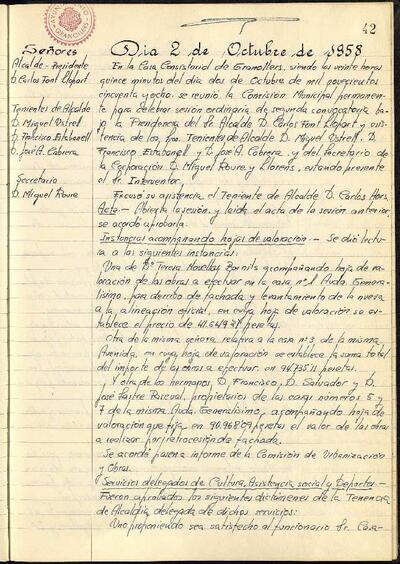 AYUNTAMIENTO GRANOLLERS
42
Señores
Alcalde-Presidente
D. Carlos Font Llopart
Tenientes de Alcalde
D. Miguel Ustrell
D. Francisco Estabanell
D. José A. Cabrera
Secretario
D. Miguel Roure
Dia 2 de Octubre de 1958
En la Casa Consistorial de Granollers, siendo las veinte horas
quince minutos del día dos de Octubre de mil novecientos
cincuenta y ocho, se reunió la Comisión Municipal permanen-
te para celebrar sesión ordinaria de segunda convocatoria ba-
jo la Presidencia del Sr. Alcalde D. Carlos Font Llopart, y asis-
tencia de los Sres. Tenientes de Alcalde D. Miguel Ustrell, D.
Francisco Estabanell y D. José A. Cabrera, y del Secretario de
la Corporación D. Miguel Roure y Llorens, estando presente
el Sr. Interventor.
Excusó su asistencia el Teniente de Alcalde D. Carlos
Acta.- Abierta la sesión, y leída el acta de la sesión anterior,
se acordó aprobarla.
Instancias acompañando hojas de valoración.- Se dió lectu-
ra a las siguientes instancias:
Una de Dª Teresa Novellas acompañando hoja de va-
loración de las obras a efectuar en la casa nº 1 Avda. Genera-
lísimo, por derribo de fachada y levantamiento de la nueva
a la alineación oficial, en cuya hoja de valoración se es-
tablece el precio de pesetas.
Otra de la misma señora relativa a la casa nº 3 de la misma
Avenida, en cuya hoja de valoración se establece la suma total
del importe de las obras a efectuar en 94.735'11 pesetas.
Y otra de los hermanos D. Francisco, D. Salvador y D.
José Sastre Pascual, propietarios de las casas números 5 y
7 de la misma Avda. Generalísimo, acompañando hoja de
valoración que fija en 90.968'09 pesetas el valor de las obras
a realizar por retrocesión de fachada.
Se acordó pasen a informe de la Comisión de Urbanización
y Obras.
Servicios delegados de Cultura, Asistencia social y Deportes.-
Fueron aprobados los siguientes dictámenes de la Tenencia
de Alcaldía delegada de dichos servicios:
Uno proponiendo sea satisfecho al funcionario Sr. Casa-